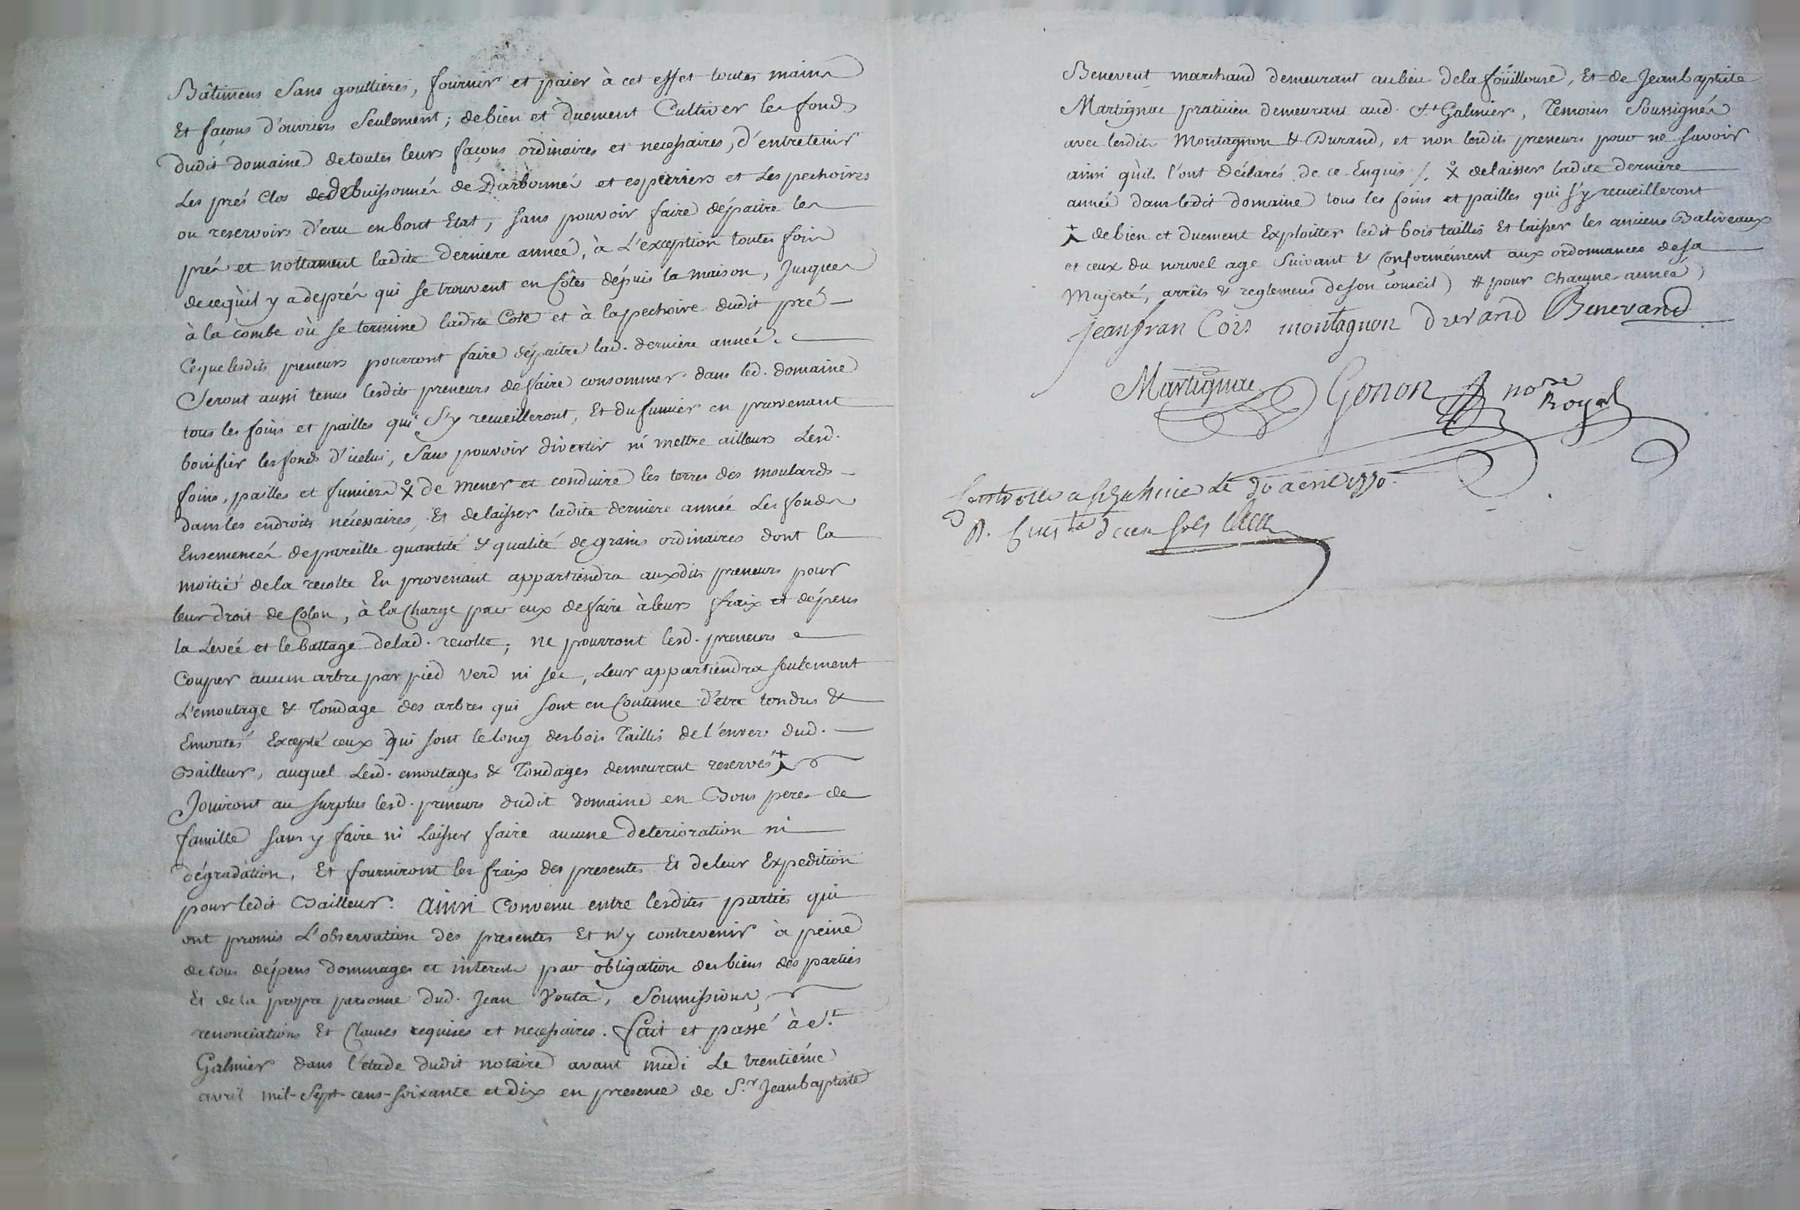 Bâtimens Sans gouttieres, fournir et paier à cet effet toutes mains
Et façons d'ouvriers Seulement; de bien et duement Cultiver les fonds
dudit domaine de toutes leurs façons ordinaires et necessaires, d'entretenir
Les prés Clos de Buissonnés de Darbonnés et esperriers et Les pechoires
ou reservoirs d'eau en bont Etat, sans pouvoir faire dépaitre les
prés et nottament ladite derniere année, à L'exception toutes fois
de ce qu'il y a de prés qui se trouvent en Côtes dépuis la maison, Jusques
à la combe où se termine ladite Cote et à la pechoire dudit pré
Ce que lesdits preneurs pourront faire dépaitre lad. derniere année.
Seront aussi tenus lesdits preneurs de faire consommer dans led. domaine
tous les foins et pailles qui s'y recueilleront, Et du fumier en provenant
bonifier les fonds d'icelui, Sans pouvoir divertir ni mettre ailleurs Lesd.
foins, pailles et fumiers de mener et conduire les terres des moulards
dans les endroits nécessaires, Et de laisser ladite derniere année Les fonds
Ensemencés de pareille quantité & qualité de grains ordinaires dont la
moitié de la recolte En provenant appartiendra auxdits preneurs pour
leur droit de Colon, à la Charge par eux de faire à leurs fraix et dépens
la Levée et le battage de lad. recolte; ne pourront lesd. preneurs
Couper aucun arbre par pied verd ni sec, Leur appartiendra seulement
L'emoutage & Tondage des arbres qui sont en Coutume d'être tondus &
Emoutés Excepté ceux qui sont le long des bois Taillis de l'envers dud.
Bailleur, auquel Lesd. emoutages & Tondages demeurent reservés
Jouiront au surplus lesd. preneurs dudit domaine en Bons peres de
famille sans y faire ni Laisser faire aucune deterioration ni
dégradation, Et fourniront les fraix des presentes Et de leur Expedition
pour ledit Bailleur. Ainsi Convenu entre lesdites parties qui
ont promis L'observation des presentes Et n'y contrevenir à peine
de tous dépens dommages et interests par obligation des biens des parties
Et de la propre personne dud. Jean Souta, Soumissions,
renonciations Et Clauses requises et necessaires. fait et passé à St.
Galmier dans l'etude dudit notaire avant midi Le trentiéme
avril mil-Sept-cens-soixante et dix en presence de Sr. Jean baptiste
Benevent marchand demeurant au lieu de la foüillouse, Et de Jean baptiste
Martignac praticien demeurant aud. St. Galmier, Temoins Soussignés
avec lesdits Montagnon & Durand, et non lesdits preneurs pour ne savoir
ainsi qu'ils l'ont déclarés de ce Enquis /. de laisser ladite derniere
année dans ledit domaine tous les foins et pailles qui s'y recueilleront
de bien et duement Exploitter ledit bois taillis Et laisser les anciens Baliveaux
et ceux du nouvel age Suivant & Conformément aux ordonnances de sa
Majesté, arrêts & reglemens de son conseil) # pour Chacune année)
jean fran Cois montagnon Durand Benevand
Martignac Gonon nore
Royal
Controllé a St Galmier Le 30 avril 1770.